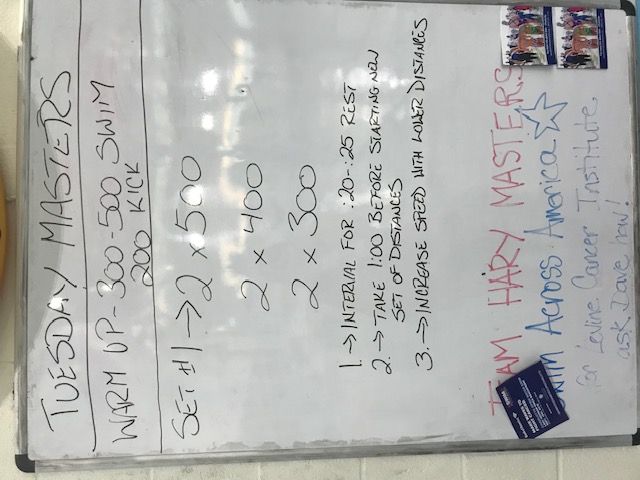 TUESDAY MASTERS
WARM UP - 300-500 SWIM
200 KICK
SET #1 → 2 x 500
2 x 400
2 x 300
1. → INTERVAL FOR :20-:25 REST
2. → TAKE 1:00 BEFORE STARTING NEW
SET OF DISTANCES
3. → INCREASE SPEED WITH LOWER DISTANCES
TEAM HARY MASTERS
Swim Across America
for Levine Cancer Institute
ask Dave how!
SWIM
MAKE WAVES TO
FIGHT CANCER